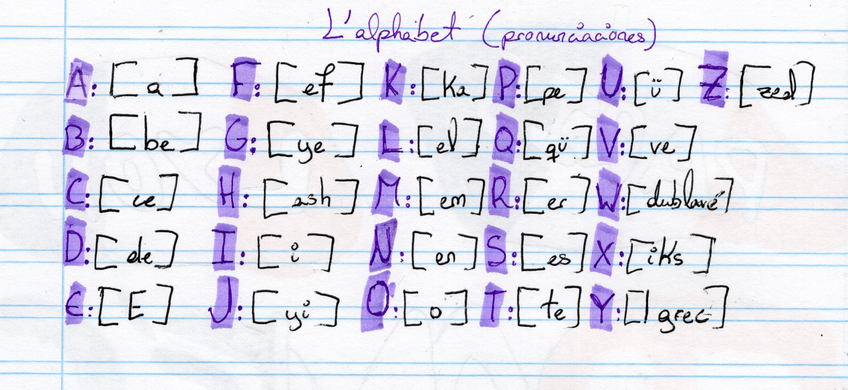 L'alphabet (pronunciaciones)
A: [a] F: [ef] K: [Ka] P: [pe] U: [ü] Z: [zed]
B: [be] G: [ye] L: [el] Q: [qü] V: [ve]
C: [ce] H: [ash] M: [em] R: [er] W: [dublavé]
D: [de] I: [i] N: [en] S: [es] X: [iks]
E: [E] J: [yi] O: [o] T: [te] Y: [I grec]